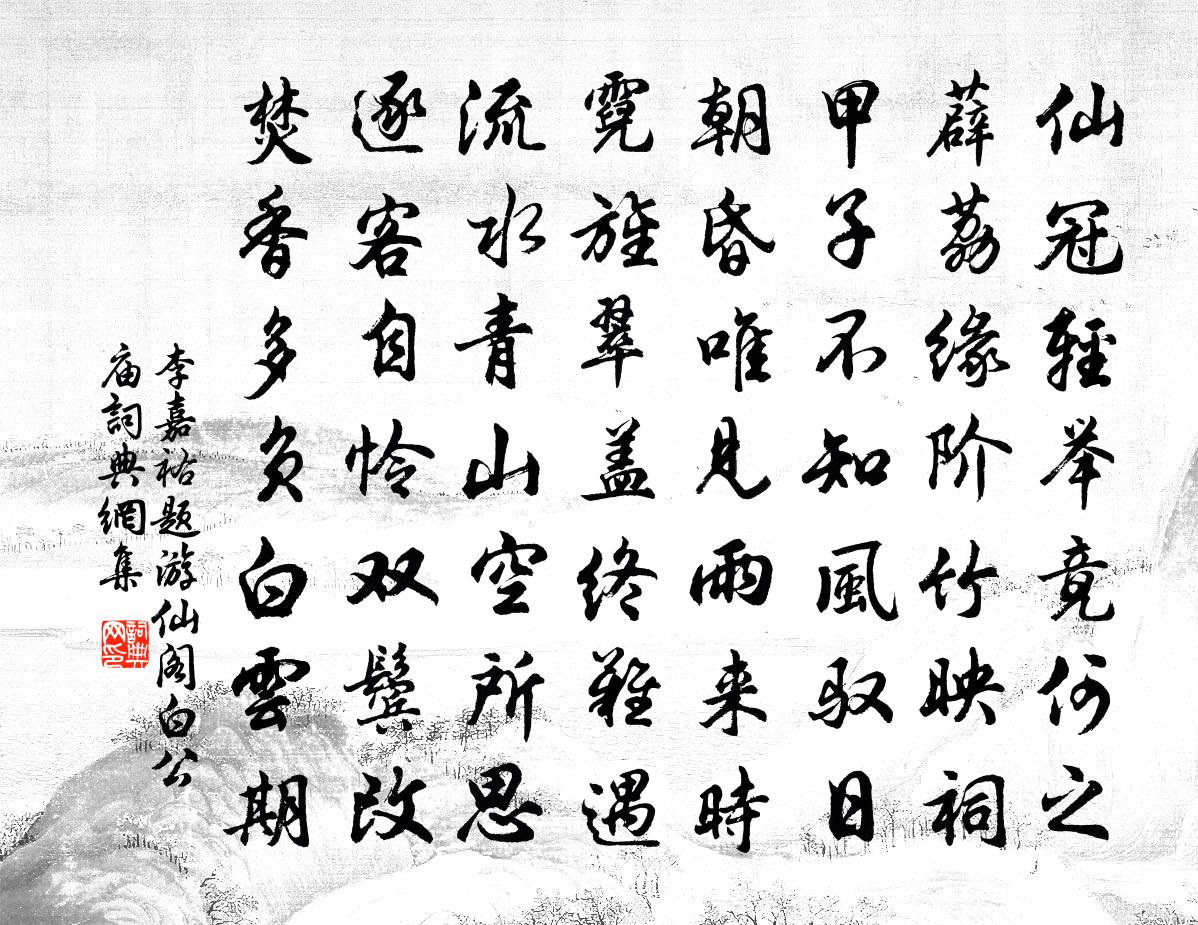 仙冠輕举竟何之
薜荔缘阶竹映祠
甲子不知風驭日
朝昏唯見雨来時
霓旌翠盖终難遇
流水青山空所思
逐客自怜双鬓改
焚香多负白雲期
李嘉祐题游仙阁白公
庙詞典網集
詞典
网印